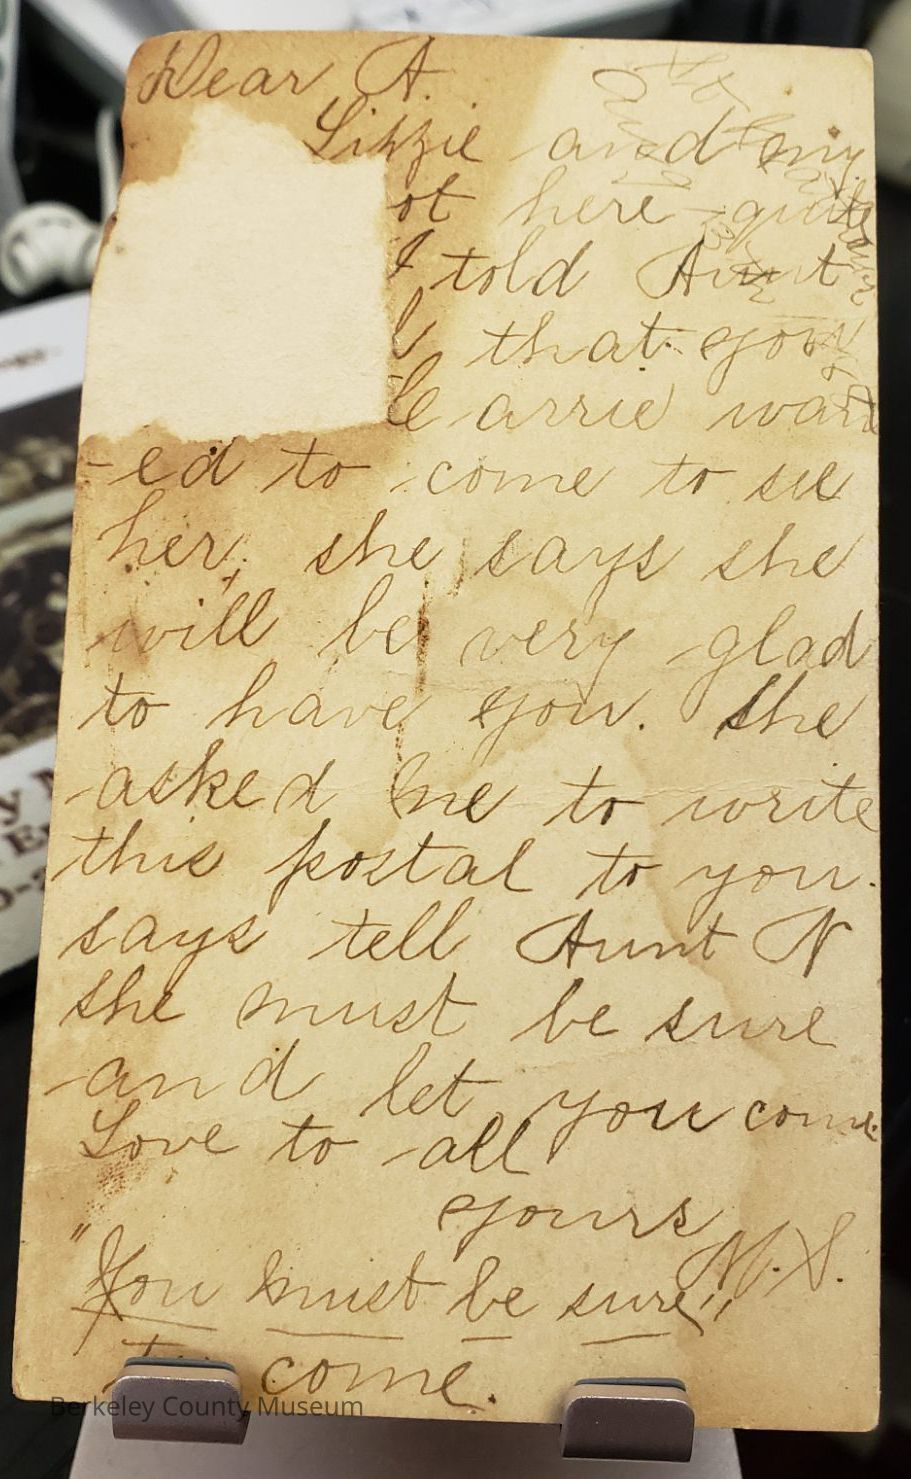 Dear A.
Lizzie and my
ot here quite
I told Aunt
l that you
Carrie want
-ed to come to see
her, she says she
will be very glad
to have you. She
asked me to write
this postal to you.
says tell Aunt N
she must be sure
and let you come
Love to all
yours
M. S.
"You must be sure"
to come.
Berkeley County Museum